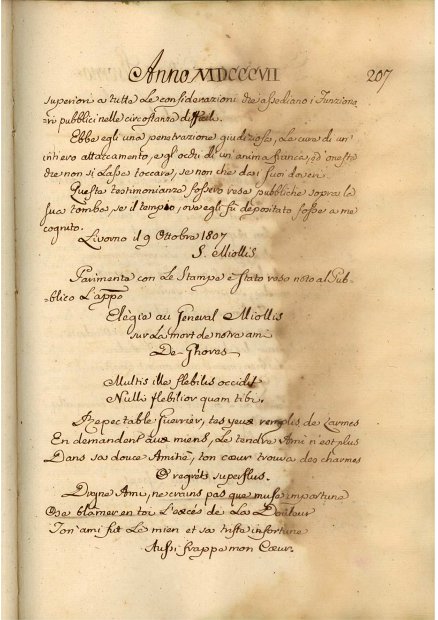 Anno MDCCCVII 207
superiori a tutte le considerazioni che assediano i Funziona,,
,,ri pubblici nelle circostanze difficili.
Ebbe egli una penetrazione giudiziosa, le cure di un'
intiero attaccamento, e gli occhi di un'anima franca, ed onesta
che non si lascia toccare, se non che dai suoi doveri.
Queste testimonianze fossero rese pubbliche sopra la
sua tomba, se il tempio, ove egli fù depositato fosse a me
cognito.
Livorno il 9 Ottobre 1807
S. Miollis
Parimente con le Stampe è stato reso noto al Pub,,
,,blico l'appo
Elègie au General Miollis
sur la mort de notre ami
De-Ghores
Multis ille flebilis occidit
Nulli flebilior quam tibi.
Respectable Guerrier, tes yeux remplis de larmes
En demandent aux miens, le tendre Ami n'est plus
Dans sa douce Amitiè, ton cœur trouva des charmes
O regrèts superflus.
Digne Ami, ne crains pas que muse importune
Ose blamer en toi l'excès de la Douleur
Ton ami fut le mien et sa triste infortune
Aussi frappe mon Cœur.